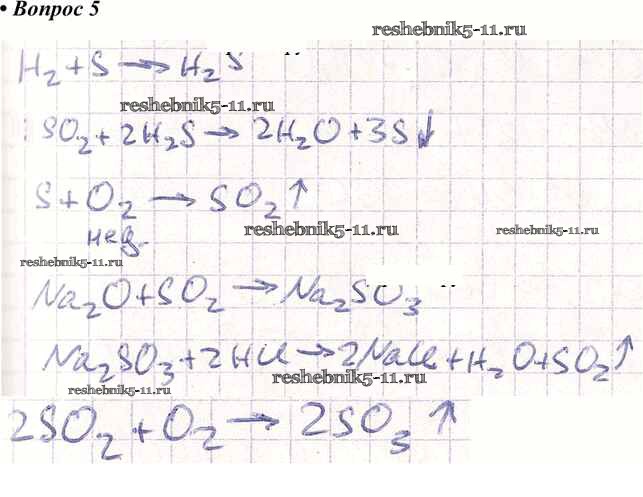 • Вопрос 5
reshebnik5-11.ru
H₂ + S → H₂S
reshebnik5-11.ru
SO₂ + 2H₂S → 2H₂O + 3S↓
S + O₂ → SO₂↑
нед.
reshebnik5-11.ru
reshebnik5-11.ru
reshebnik5-11.ru
Na₂O + SO₂ → Na₂SO₃
Na₂SO₃ + 2HCl → 2NaCl + H₂O + SO₂↑
reshebnik5-11.ru
reshebnik5-11.ru
2SO₂ + O₂ → 2SO₃↑